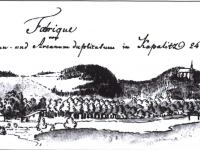 Fabrique
von
und Arcanum duplicatum in Kopalitz 24